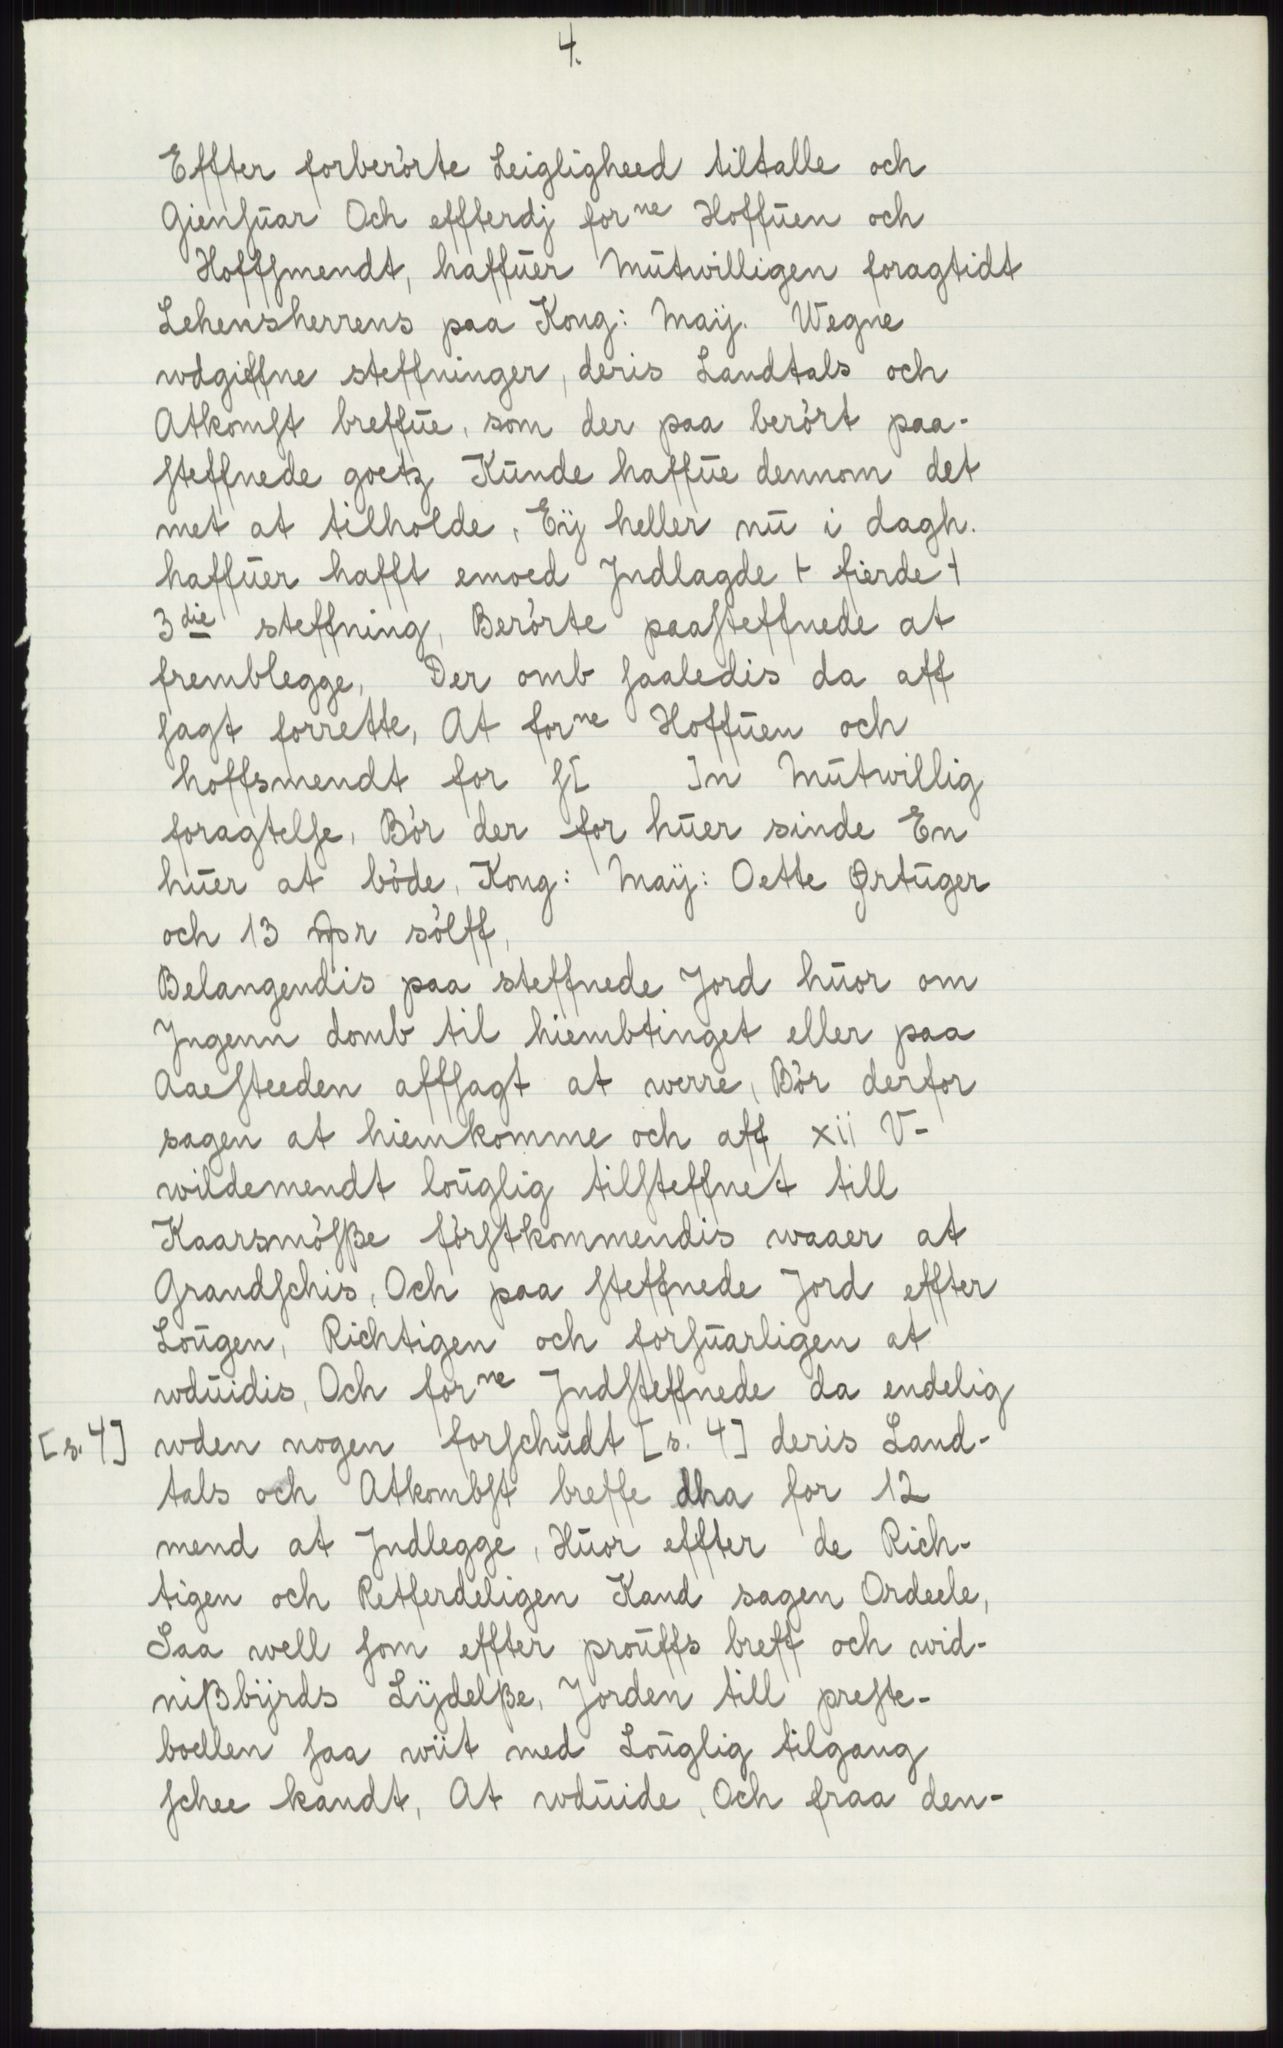 4.
Effter forberörte Leigligheed tiltalle och
Giensuar Och effterdj forne Hoffuen och
Hoffsmendt, haffuer Mutwilligen foragtidt
Lehensherrens paa Kong: Maij. Wegne
wdgiffne steffninger, deris Landtals och
Atkomst breffue, som der paa berört paa-
steffnede goetz Kunde haffue dennom det
met at tilholde, Eij heller nu i dagh.
haffuer hafft emoed Jndlagde ⊢ fierde ⊣
3die steffning, Berörte paasteffnede at
fremblegge, Der omb saaledis da aff
sagt forrette, At forne Hoffuen och
hoffsmendt for s[ ]n Mutwillig
foragtelse, Bör der for huer sinde En
huer at böde, Kong: Maij: Oette Ørtuger
och 13 sölff,
Belangendis paa steffnede Jord huor om
Jngenn domb til hiembtinget eller paa
Aaesteeden affsagt at werre, Bör derfor
sagen at hiemkomme och aff xii V-
wildemendt louglig tilsteffnet till
Kaarsmösße förstkommendis waaer at
Grandschis, Och paa steffnede Jord effter
Lougen, Richtigen och forsuarligen at
wduidis, Och forne Jndsteffnede da endelig
[s. 4] wden nogen forschudt [s. 4] deris Land-
tals och Atkombst breffe dha for 12
mend at Jndlegge, Huor effter de Rich-
tigen och Retferdeligen Kand sagen Ordeele,
Saa well som effter prouffs breff och wid-
nißbijrds Lijdelße, Jorden till preste-
boellen saa wiit med Louglig tilgang
schee kandt, At wduide, Och fraa den-